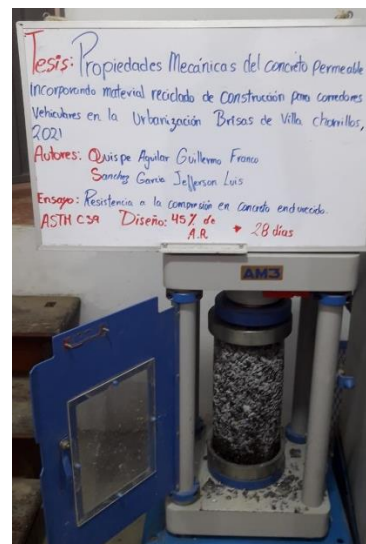 Tesis: Propiedades Mecánicas del concreto permeable
incorporando material reciclado de construcción para corredores
vehiculares en la Urbanización Brisas de Villa chorrillos,
2021
Autores: Quispe Aguilar Guillermo Franco
Sanchez Garcia Jefferson Luis
Ensayo: Resistencia a la compresión en concreto endurecido.
ASTM C39 Diseño: 45% de
A.R * 28 días
AM3